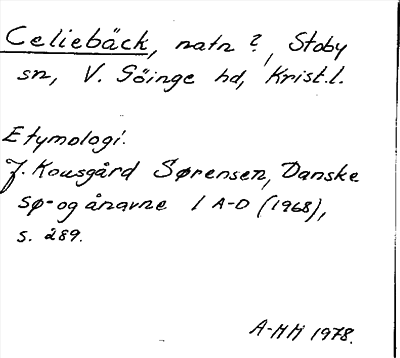 Celiebäck, natn ?, Stoby
sn, V. Göinge hd, Krist.l.
Etymologi:
J. Kousgård Sørensen, Danske
sø- og ånavne 1 A-D (1968),
s. 289.
A-MM 1978.